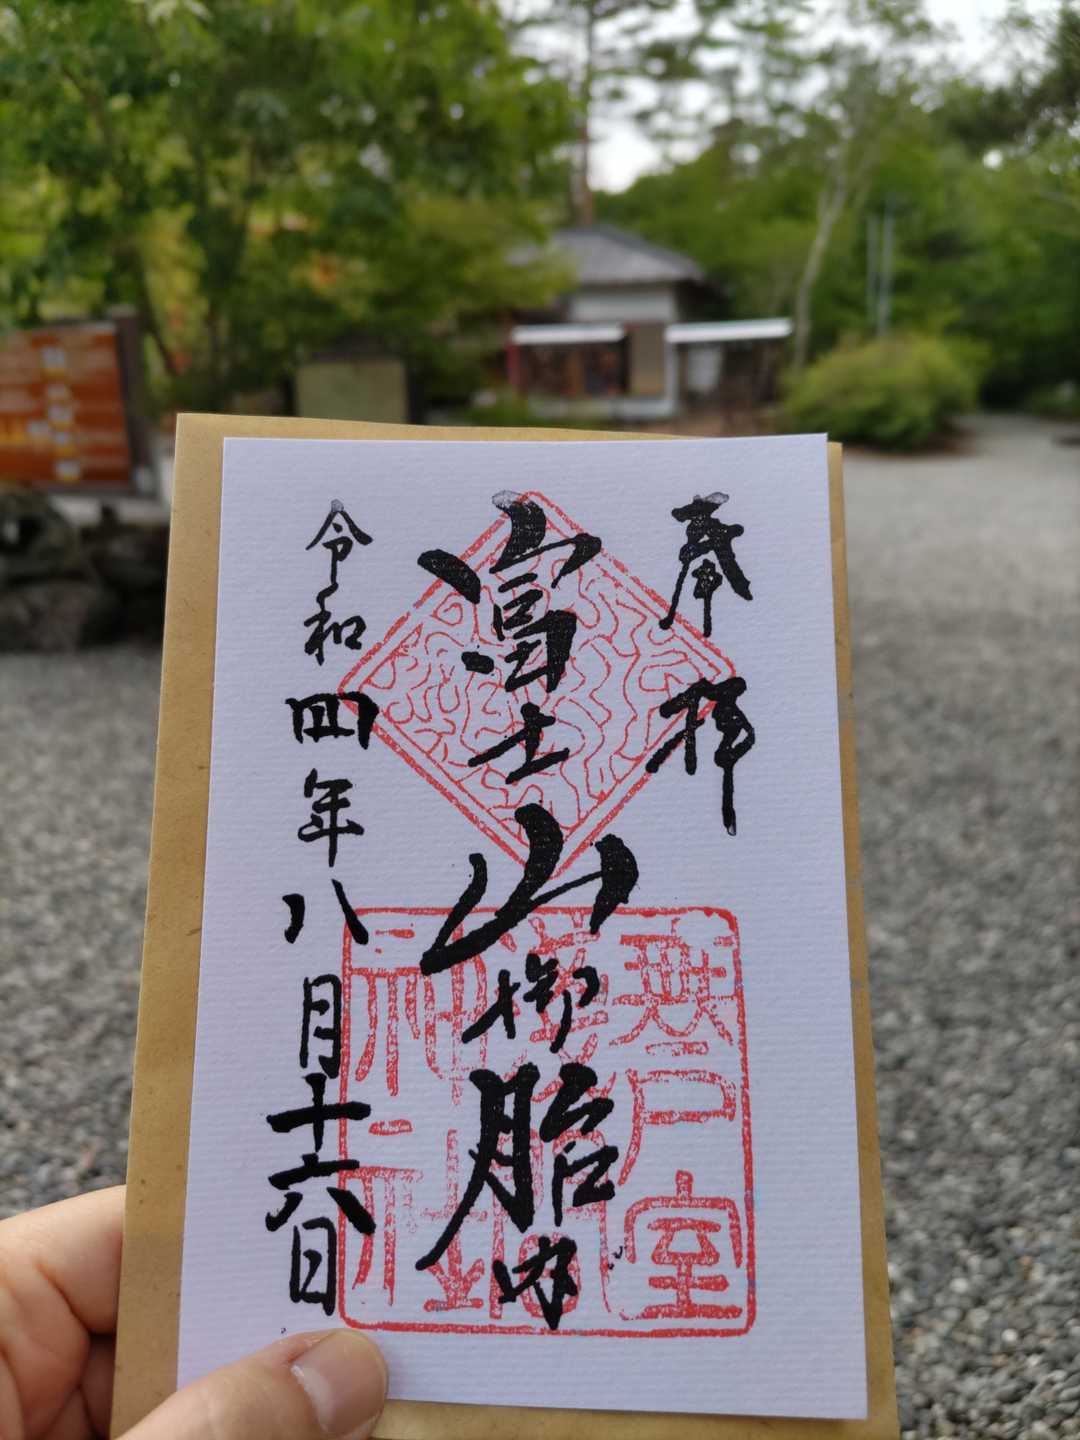 奉拝
富士山御胎内
令和四年八月十六日
無戸室
淺間
神社